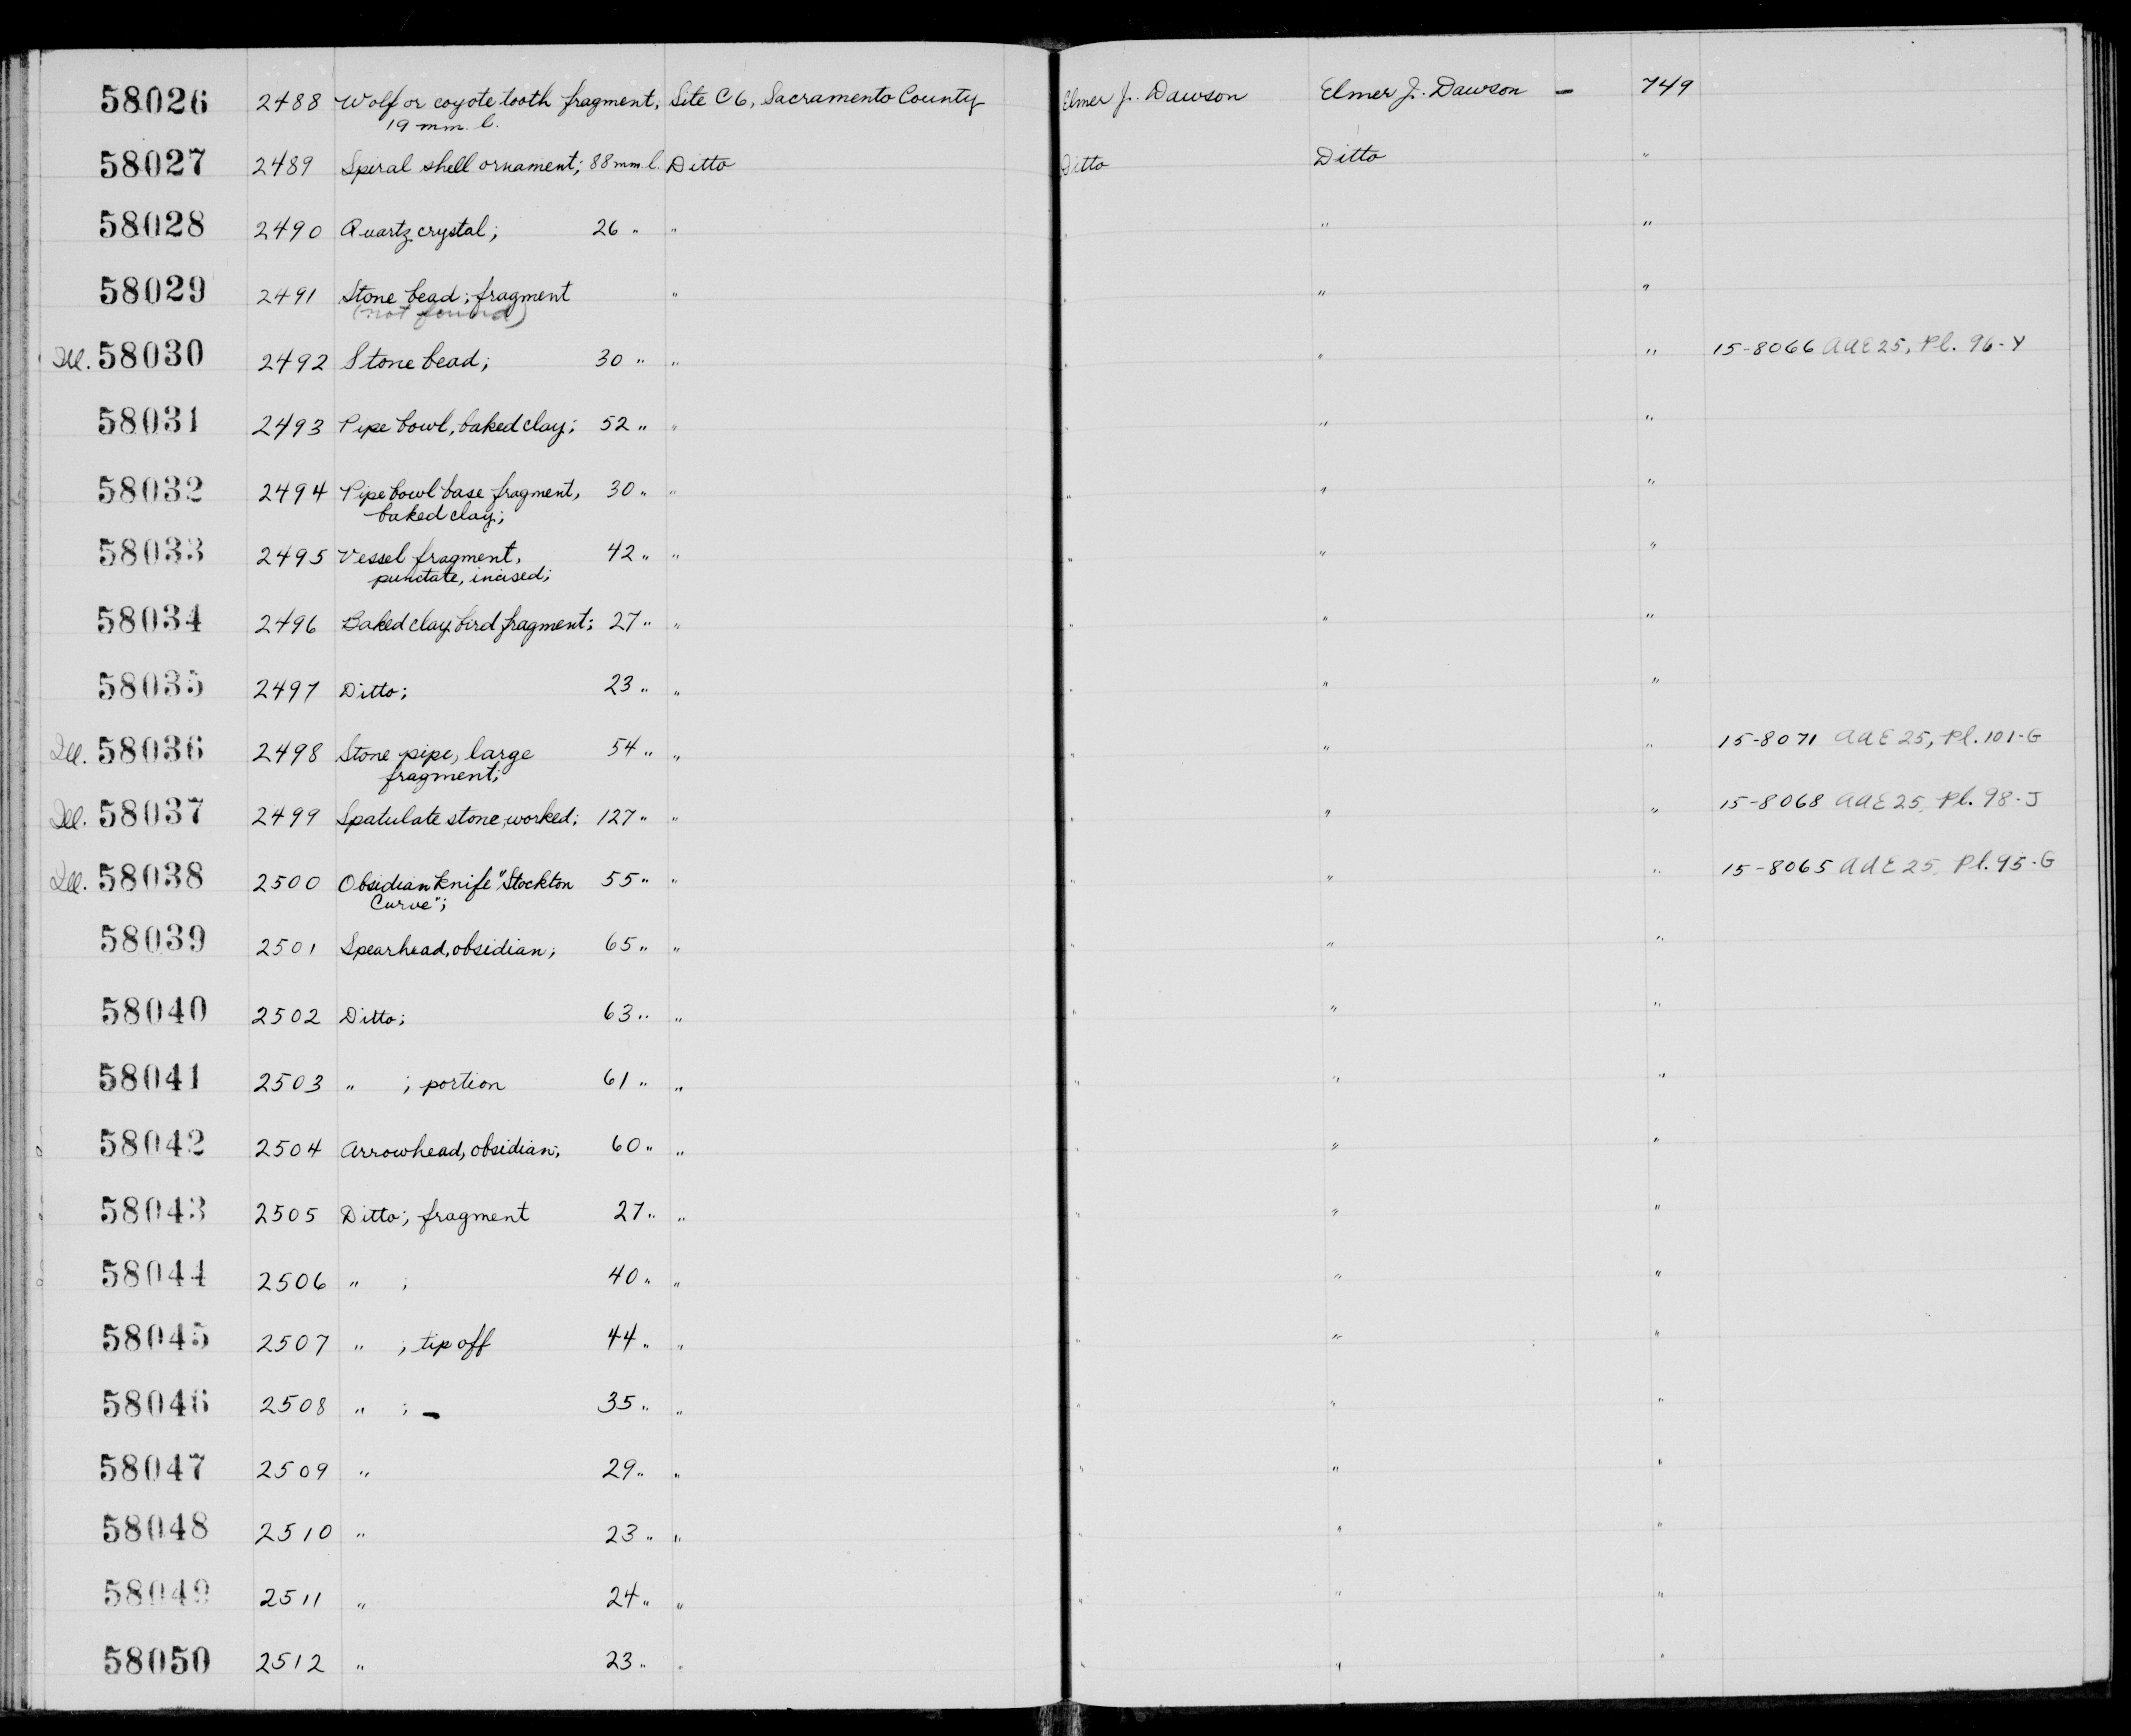 58026 2488 Wolf or coyote tooth fragment, Site C6, Sacramento County Elmer J. Dawson Elmer J. Dawson – 749
19 mm. l.
58027 2489 Spiral shell ornament; 88 mm l. Ditto Ditto Ditto "
58028 2490 Quartz crystal; 26 " " " " "
58029 2491 Stone bead; fragment " " " "
(not found)
Ill. 58030 2492 Stone bead; 30 " " " " " 15-8066 AAE 25, Pl. 96-Y
58031 2493 Pipe bowl, baked clay; 52 " " " " "
58032 2494 Pipe bowl base fragment, 30 " " " " "
baked clay;
58033 2495 Vessel fragment, 42 " " " " "
punctate, incised;
58034 2496 Baked clay bird fragment; 27 " " " " "
58035 2497 Ditto; 23 " " " " "
Ill. 58036 2498 Stone pipe, large 54 " " " " " 15-8071 AAE 25, Pl. 101-G
fragment;
Ill. 58037 2499 Spatulate stone, worked; 127 " " " " " 15-8068 AAE 25, Pl. 98-J
Ill. 58038 2500 Obsidian knife "Stockton 55 " " " " " 15-8065 AAE 25, Pl. 95-G
Curve";
58039 2501 Spearhead, obsidian; 65 " " " " "
58040 2502 Ditto; 63 " " " " "
58041 2503 " ; portion 61 " " " " "
58042 2504 Arrowhead, obsidian; 60 " " " " "
58043 2505 Ditto; fragment 27 " " " " "
58044 2506 " ; 40 " " " " "
58045 2507 " ; tip off 44 " " " " "
58046 2508 " ; – 35 " " " " "
58047 2509 " 29 " " " " "
58048 2510 " 23 " " " " "
58049 2511 " 24 " " " " "
58050 2512 " 23 " " " " "